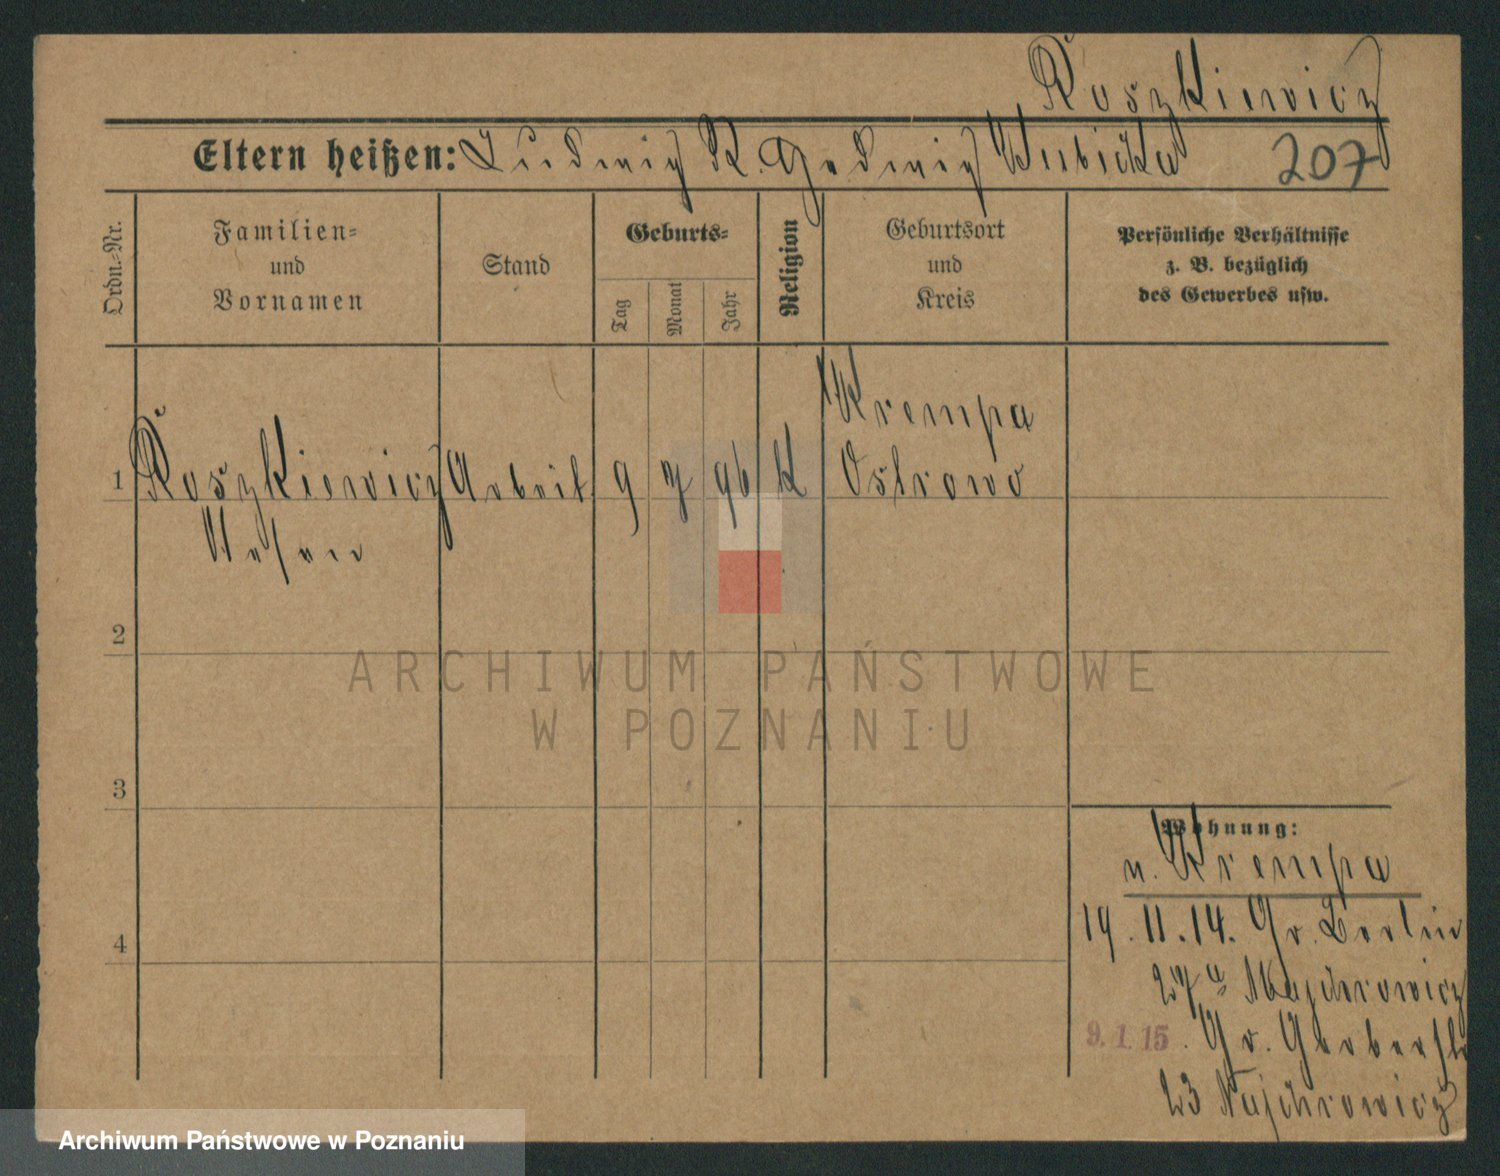 Roszkiewicz
Eltern heißen: Ludwig R. Hedwig Kubicka
207
Ordn.-Nr.
Familien-
und
Vornamen
Stand
Geburts-
Tag
Monat
Jahr
Religion
Geburtsort
und
Kreis
Persönliche Verhältnisse
z. B. bezüglich
des Gewerbes usw.
1
Roszkiewicz
Arbeit.
9
7
96
K
Krempa
Ostrowo
2
3
4
Wohnung:
n. Krempa
19.11.14. Gr. Berlin
27a Majchrowicz
9.1.15. Gr. Gerberstr
23 Majchrowicz
ARCHIWUM PAŃSTWOWE
W POZNANIU
Archiwum Państwowe w Poznaniu